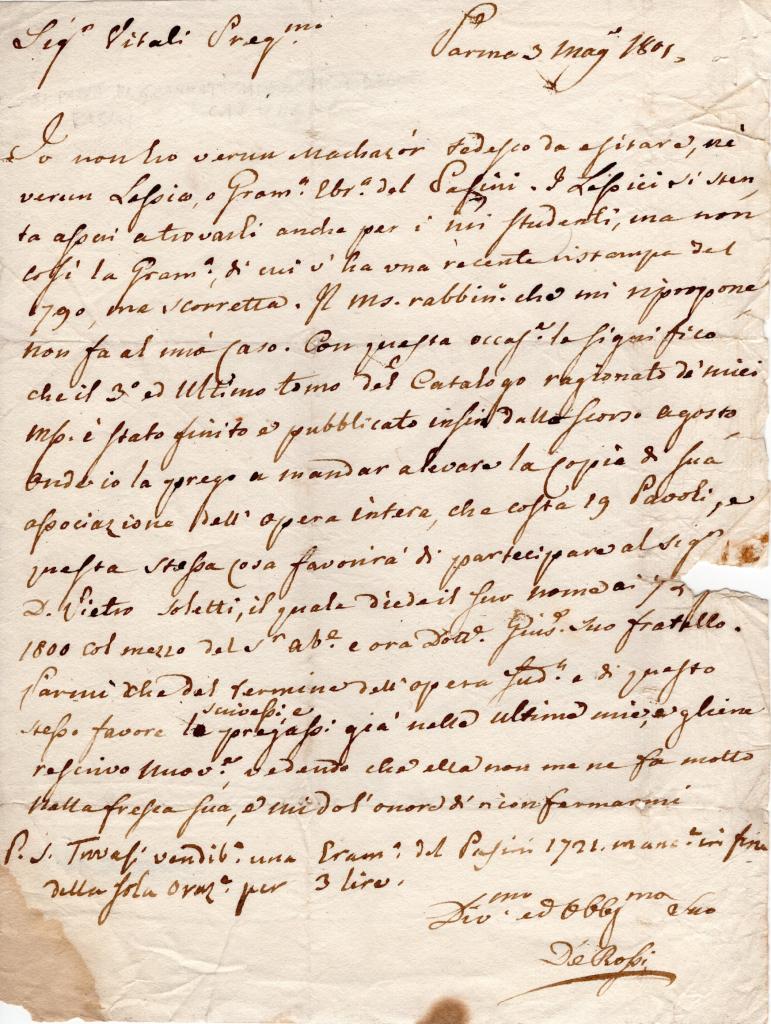 Sig.r Vitali Preg.mo
Parma 3 Mag.o 1801.
Io non ho verun Machazór tedesco da esitare, nè
verun Lessico, o Gram.a Ebr.a del Pasini. I Lessici si sten,
ta assai a trovarli anche per i miei studenti, ma non
così la Gram.a, di cui v'ha una recente ristampa del
1790, ma scorretta. Il ms. rabbin.o che mi ripropone
non fa al mio caso. Con questa occas.e le significo
che il 3.o ed ultimo tomo del Catalogo ragionato de' miei
mss. è stato finito e pubblicato insin dallo scorso agosto
Onde io la prego a mandar a levare la copia di sua
associazione dell'opera intera, che costa 19 Pavoli, e
questa stessa cosa favorirà di partecipare al Sig.r
D. Pietro Soletti, il quale diede il suo nome ai
1800 col mezzo del S.r ab.e e ora Dott.e Gius.e suo fratello.
Parmi che del termine dell'opera sud.a e di questo
stesso favore le scrivessi, e pregassi già nelle ultime mie, e gliene
rescrivo nuov.e, vedendo che ella non me ne fa motto
nella fresca sua, e mi do l'onore di riconfermarmi
P. S. Trovasi vendib.e una Gram.a del Pasini 1721. manc.e in fine
della sola Oraz.e per 3 lire.
Div.mo ed Obblg.mo Suo
De Rossi